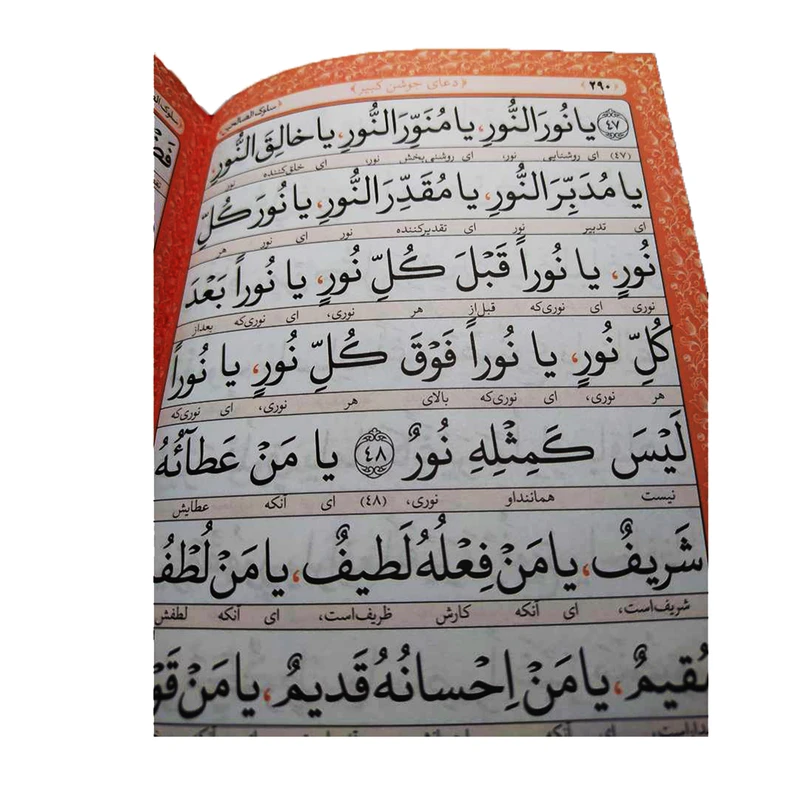 ﴿۲۹۰﴾ ﴿دعای جوشن کبیر﴾ ﴿سلوک الصالحین﴾
۴۷ یا نُورَ النُّورِ، یا مُنَوِّرَ النُّورِ، یا خالِقَ النُّورِ
(۴۷) ای روشنایی نور، ای روشنی‌بخش نور، ای خلق‌کننده نور
یا مُدَبِّرَ النُّورِ، یا مُقَدِّرَ النُّورِ، یا نُورَ کُلِّ
ای تدبیر نور ای تقدیرکننده نور ای نور هر
نُورٍ، یا نُوراً قَبْلَ کُلِّ نُورٍ، یا نُوراً بَعْدَ
نوری ای نوری‌که قبل‌از هر نوری، ای نوری‌که بعداز
کُلِّ نُورٍ، یا نُوراً فَوْقَ کُلِّ نُورٍ، یا نُوراً
هر نوری، ای نوری‌که بالای هر نوری، ای نوری‌که
لَیْسَ کَمِثْلِهِ نُورٌ ۴۸ یا مَنْ عَطآئُهُ
نیست همانند‌او نوری، (۴۸) ای آنکه عطایش
شَریفٌ، یا مَنْ فِعْلُهُ لَطیفٌ، یا مَنْ لُطْفُ
شریف‌است، ای آنکه کارش ظریف‌است، ای آنکه لطفش
مُقیمٌ، یا مَنْ اِحْسانُهُ قَدیمٌ، یا مَنْ قَوْ